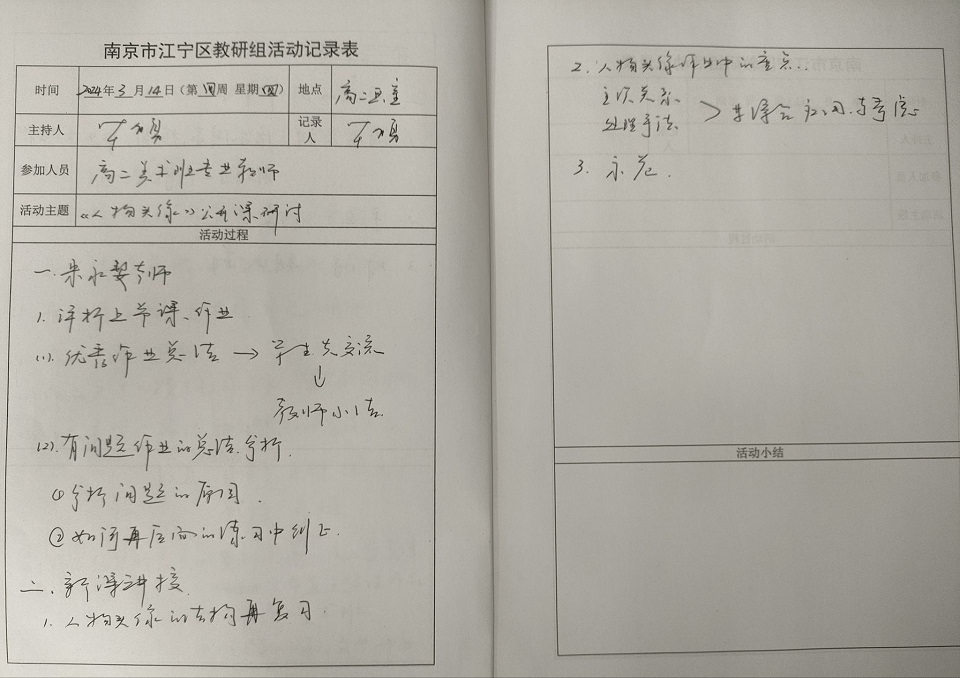 南京市江宁区教研组活动记录表
时间 2024年3月14日(第四周 星期四) 地点 高二画室
主持人 记录人
参加人员 高二美术班专业教师
活动主题 《人物头像》公开课研讨
活动过程
一.朱永 老师
1.评析上节课、作业
(1).优秀作业总结 → 学生先交流
↓
教师小结
(2).有问题作业的总结分析.
①分析问题的原因.
②如何再后面的练习中纠正.
二.新课讲授
1.人物头像的结构再复习
2.人物头像作业中的重点..
主次关系
处理手法 > 并谨合 与考虑
3.示范.
活动小结